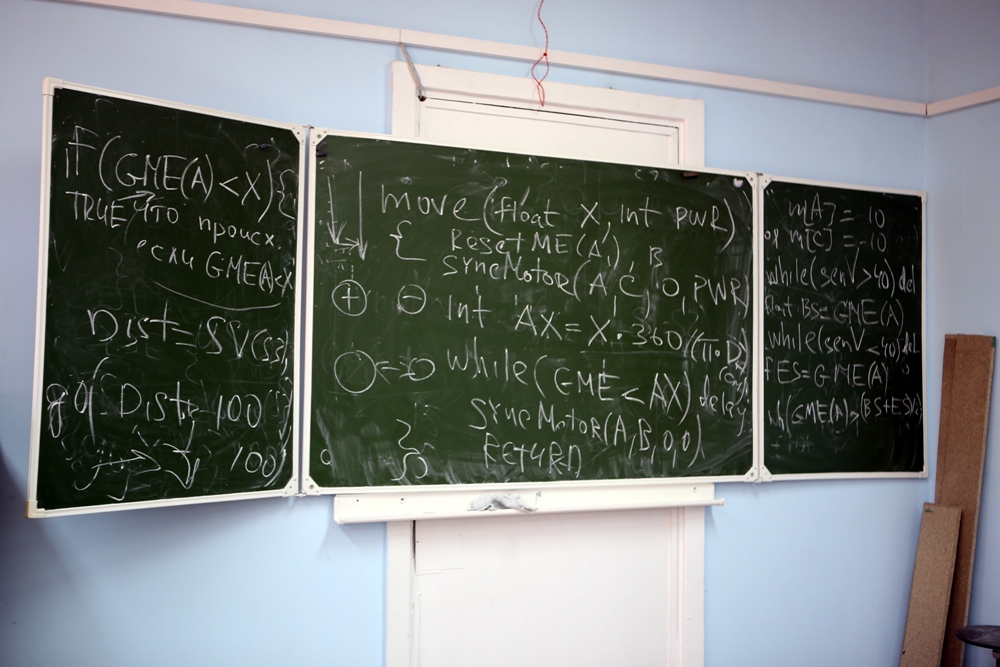 if (GME(A) < X) {
TRUE что происх.
если GME(A) < X
Dist = SV(S3)
Dist 100
100
move (float X, int PWR)
{ Reset ME (A)
B
syncMotor(A, C, 0, PWR)
+ -
int AX = X · 360 / (π · D)
while (GME < AX) delay
syncMotor(A, B, 0, 0)
Return
}
m[A] = 10
m[C] = -10
while (senV > 40) del
float BS = GME(A)
while (senV < 40) del
f ES = GME(A)
wh(GME(A) > (BS+ES)/2